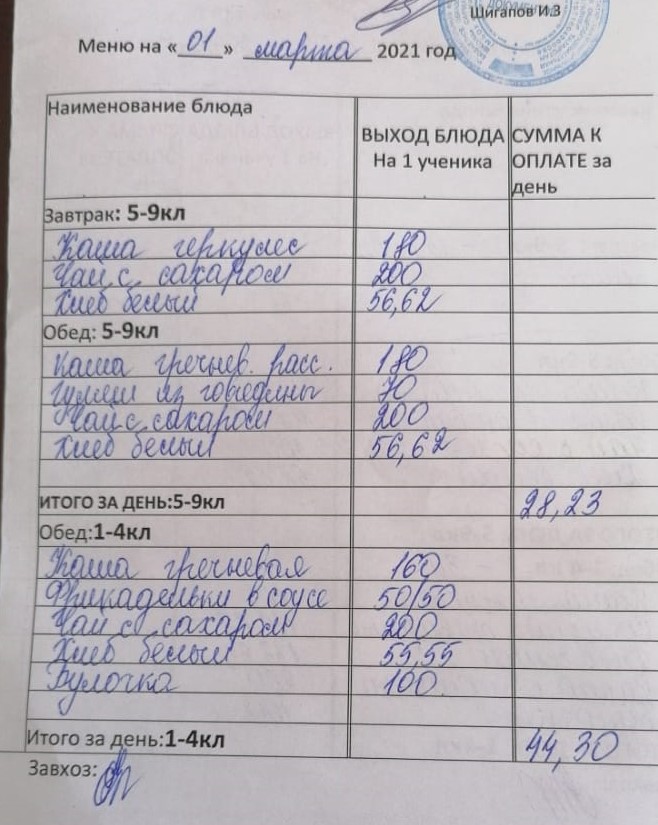 Шигапов И.З
Меню на «01» марта 2021 год
Наименование блюда
ВЫХОД БЛЮДА На 1 ученика
СУММА К ОПЛАТЕ за день
Завтрак: 5-9кл
Каша геркулес 180
Чай с сахаром 200
Хлеб белый 56,62
Обед: 5-9кл
Каша гречнев. расс. 180
Гуляш из говядины 70
Чай с сахаром 200
Хлеб белый 56,62
ИТОГО ЗА ДЕНЬ:5-9кл 28,23
Обед:1-4кл
Каша гречневая 160
Фрикадельки в соусе 50/50
Чай с сахаром 200
Хлеб белый 55,55
Булочка 100
Итого за день:1-4кл 44,30
Завхоз: